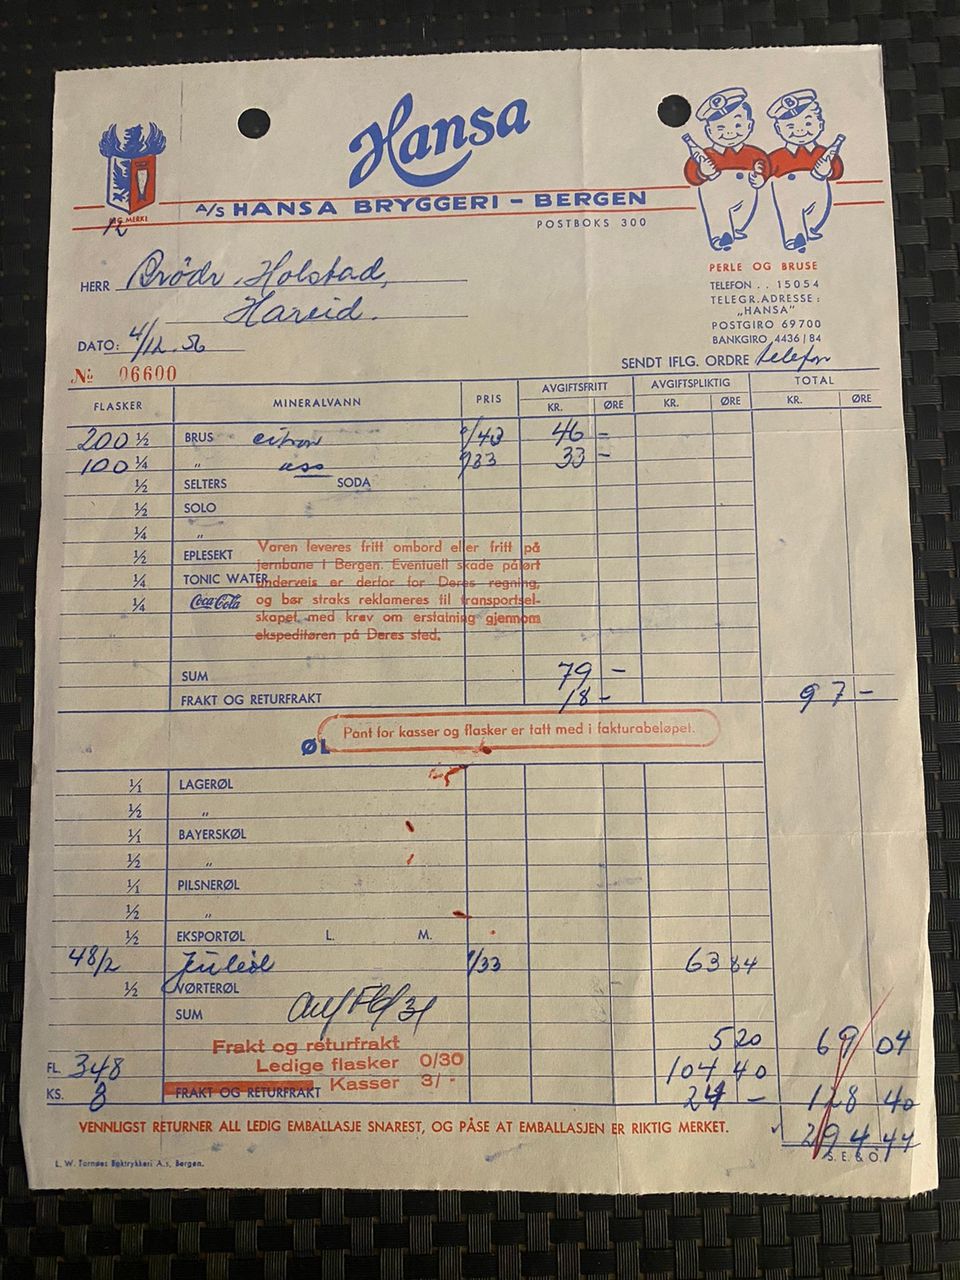 Hansa
REG. MERKE
A/S HANSA BRYGGERI - BERGEN
POSTBOKS 300
P B
PERLE OG BRUSE
TELEFON . . 15054
TELEGR.ADRESSE:
„HANSA"
POSTGIRO 69700
BANKGIRO 4436/84
HERR Brødr. Holstad,
Hareid.
DATO: 4/12.56
SENDT IFLG. ORDRE telefon
№ 06600
FLASKER MINERALVANN PRIS AVGIFTSFRITT AVGIFTSPLIKTIG TOTAL
KR. ØRE KR. ØRE KR. ØRE
200 ½ BRUS citron /43 46 -
100 ¼ „ ass /33 33 -
½ SELTERS SODA
½ SOLO
¼ „
½ EPLESEKT
¼ TONIC WATER
¼ Coca-Cola
Varen leveres fritt ombord eller fritt på
jernbane i Bergen. Eventuell skade påført
underveis er derfor for Deres regning,
og bør straks reklameres til transportsel-
skapet med krav om erstatning gjennom
ekspeditøren på Deres sted.
SUM 79 -
FRAKT OG RETURFRAKT 18 - 97 -
Pant for kasser og flasker er tatt med i fakturabeløpet.
ØL
1/1 LAGERØL
½ „
1/1 BAYERSKØL
½ „
1/1 PILSNERØL
½ „
½ EKSPORTØL L. M.
48/2 Juleøl 1/33 63 84
½ VØRTERØL
SUM
Frakt og returfrakt 5 20 69 04
FL. 348 Ledige flasker 0/30 104 40
KS. 8 FRAKT OG RETURFRAKT Kasser 3/- 24 - 128 40
294 44
VENNLIGST RETURNER ALL LEDIG EMBALLASJE SNAREST, OG PÅSE AT EMBALLASJEN ER RIKTIG MERKET.
S. E. & O.
L. W. Tornøes Boktrykkeri A.s, Bergen.